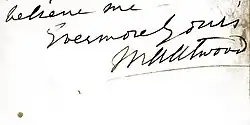 believe me
Evermore Yours
MAAtwood